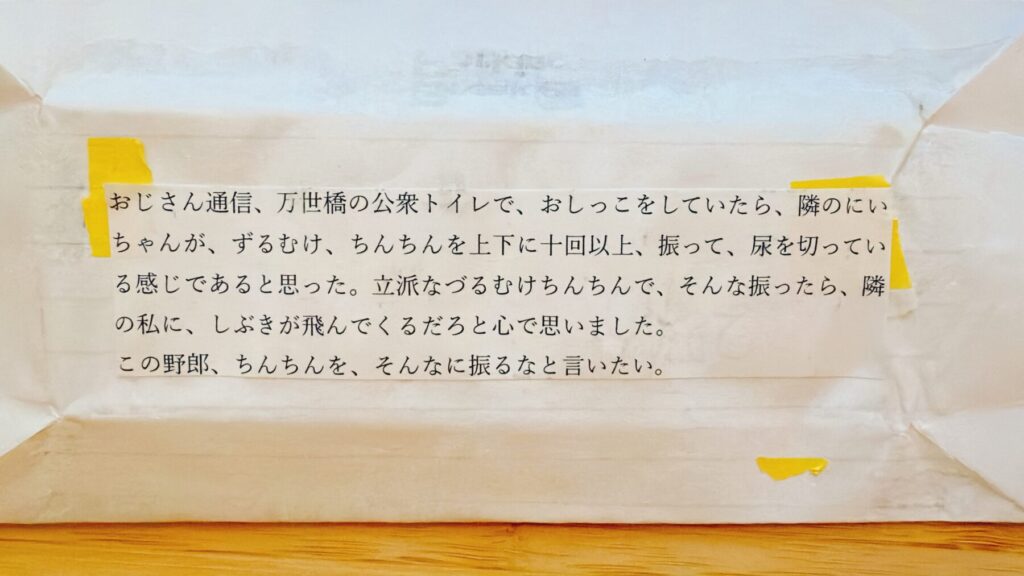 おじさん通信、万世橋の公衆トイレで、おしっこをしていたら、隣のにい
ちゃんが、ずるむけ、ちんちんを上下に十回以上、振って、尿を切ってい
る感じであると思った。立派なづるむけちんちんで、そんな振ったら、隣
の私に、しぶきが飛んでくるだろと心で思いました。
この野郎、ちんちんを、そんなに振るなと言いたい。